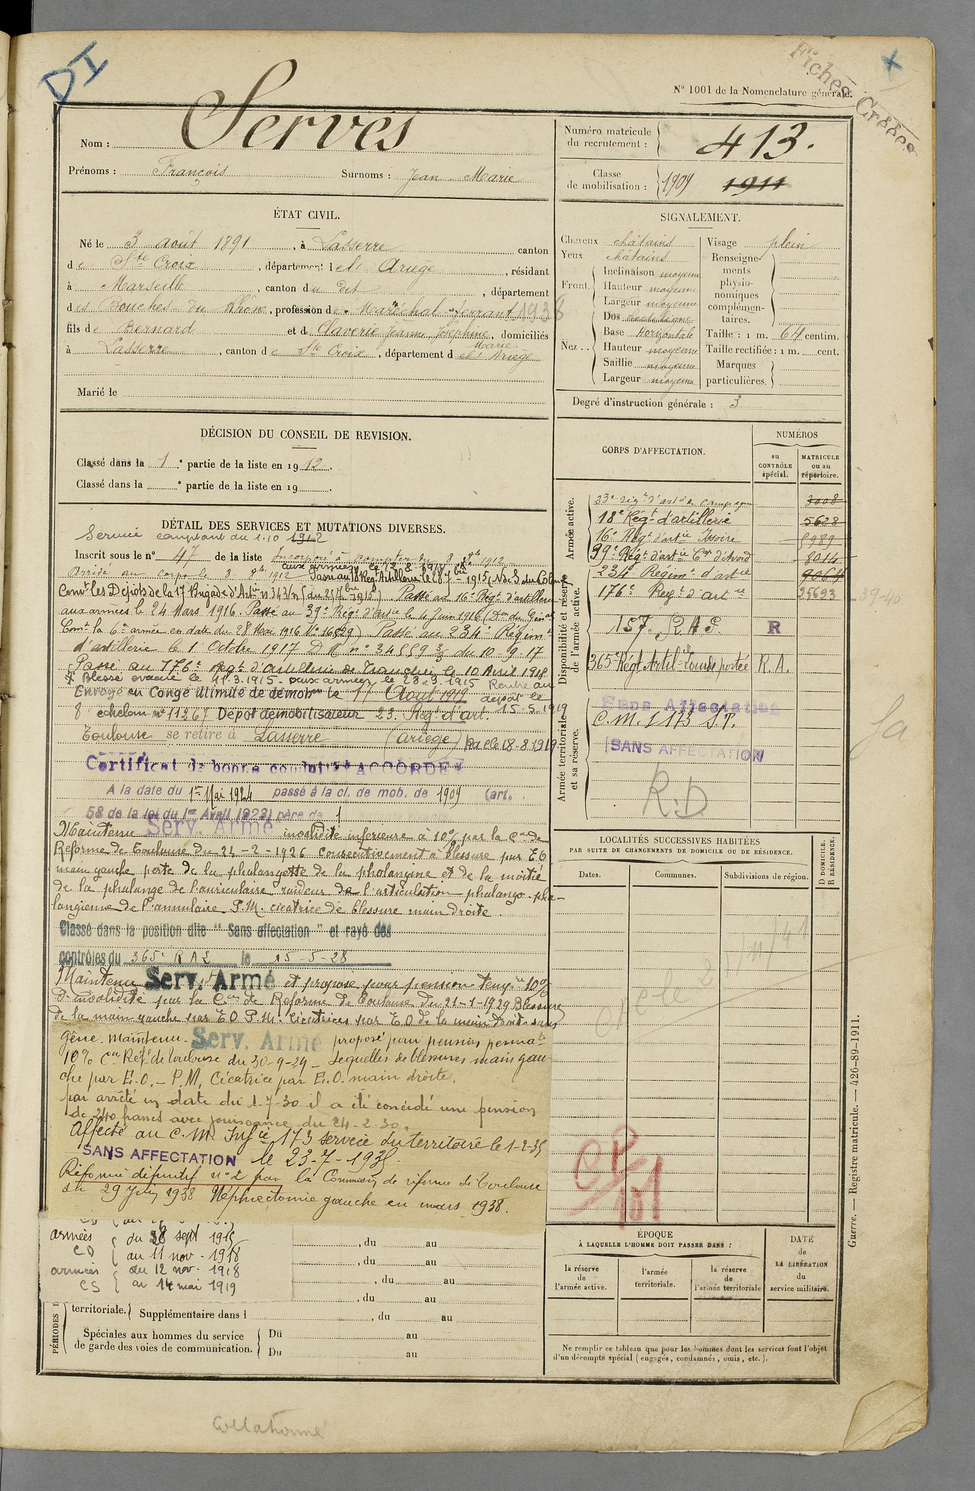 DI
Fiches Créées
N° 1001 de la Nomenclature générale.
Nom : Serves
Prénoms : François Surnoms : Jean Marie
Numéro matricule du recrutement : 413.
Classe de mobilisation : 1909 1911
ÉTAT CIVIL.
Né le 3 août 1891, à Lasserre canton
de Ste Croix, département de l'Ariège, résidant
à Marseille, canton du dit, département
des Bouches du Rhône, profession de Maréchal-ferrant 1938
fils de Bernard et de Claverie Jeanne Joséphine Marie, domiciliés
à Lasserre, canton de Ste Croix, département de l'Ariège
Marié le
SIGNALEMENT.
Cheveux châtains
Yeux châtains
Front. Inclinaison moyenne
Hauteur moyenne
Largeur moyenne
Nez. Dos rectiligne
Base Horizontale
Hauteur moyenne
Saillie moyenne
Largeur moyenne
Visage plein
Renseignements physionomiques complémentaires.
Taille : 1 m. 64 centim.
Taille rectifiée : 1 m. cent.
Marques particulières.
Degré d'instruction générale : 3
DÉCISION DU CONSEIL DE REVISION.
Classé dans la 1e partie de la liste en 1912.
Classé dans la e partie de la liste en 19 .
CORPS D'AFFECTATION.
NUMÉROS
au CONTRÔLE spécial.
MATRICULE ou au répertoire.
Armée active.
33e Régt d'artie de campagne 3008
18e Régt d'artillerie 5628
16e Régt d'artie Issoire 8989
Disponibilité et réserve de l'armée active.
234e Régimt d'artie
176e Régt d'artie 25693
157e R.A.P. R
365e Régt Artil. Lourde portée R.A.
Armée territoriale et sa réserve.
Sans Affectation
C.M. I 173 S.T.
SANS AFFECTATION
R.D
39-40
DÉTAIL DES SERVICES ET MUTATIONS DIVERSES.
Service comptant du 1.10 1912
Inscrit sous le n° 47 de la liste Incorporé à compter du 8 8bre 1912
Arrivé au corps le 8 8bre 1912
aux armées le 24 Mars 1916. Passé au 39e Régt d'Artie le 4 Juin 1916
Cmt la 6e armée en date du 28 Mai 1916 N° 16829) Passé au 234e Régimt
d'artillerie le 1 Octobre 1917 D.M. n° 34559 3/3 du 10-9-17
Passé au 176e Régt d'artillerie de Tranchée le 10 Avril 1918
Blessé évacué le 4.3.1915 - aux armées le 28-9-1915 Rentré au dépôt le 15-5-1919
Envoyé en Congé illimité de démobon le 17 Août 1919
8 echelon n° 11267 Dépôt démobilisateur 23. Régt d'art.
Toulouse se retire à Lasserre (ariège) Pac le 18-8-1919
Certificat de bonne conduite ACCORDÉ
A la date du 1er Mai 1924 passé à la cl. de mob. de 1909 (art.
58 de la loi du 1er Avril 1923) père de 1
Maintenu Serv. Armé invalidité inférieure à 10% par la Con de
Réforme de Toulouse du 24-2-1926 Consécutivement à blessure par E.O
main gauche perte de la phalangette de la phalangine et de la moitié
de la phalange de l'auriculaire raideur de l'articulation phalango-pha-
langienne de l'annulaire P.M. cicatrice de blessure main droite
Classé dans la position dite "Sans affectation" et rayé des
contrôles du 365e RAL le 15-5-28
Maintenu Serv. Armé et proposé pour pension tempre 10%
d'invalidité par la Con de Réforme de Toulouse du 21-1-1929 Blessure
de la main gauche par E.O P.M. Cicatrices par E.O de la main droite sans
gêne. Maintenu Serv. Armé proposé pour pension permate
10% Con Réf. de Toulouse du 30-9-29 - Séquelles de blessures main gau-
che par E.O. - P.M, Cicatrice par E.O. main droite.
par arrêté en date du 1-7-30 il a été concédé une pension
de 240 francs avec jouissance du 24-2-30.
Affecté au C.M. Infie 173 service du territoire le 1-2-35
SANS AFFECTATION le 23-7-1935.
Réformé définitif n°2 par la Commission de réforme de Toulouse
du 29 Juin 1938 Néphrectomie gauche en mars 1938.
LOCALITÉS SUCCESSIVES HABITÉES
PAR SUITE DE CHANGEMENTS DE DOMICILE OU DE RÉSIDENCE.
Dates. Communes. Subdivisions de région. D DOMICILE. R RÉSIDENCE.
CP/101
armées du 28 sept 1915
CD au 11 nov. 1918
armées du 12 nov. 1918
CS au 14 mai 1919
, du au
, du au
, du au
, du au
PÉRIODES
territoriale. Supplémentaire dans l , du au
Spéciales aux hommes du service de garde des voies de communication. Du au
Du au
ÉPOQUE
À LAQUELLE L'HOMME DOIT PASSER DANS :
la réserve de l'armée active.
l'armée territoriale.
la réserve de l'armée territoriale
DATE de LA LIBÉRATION du service militaire.
Ne remplir ce tableau que pour les hommes dont les services font l'objet
d'un décompte spécial (engagés, condamnés, omis, etc.).
Guerre. — Registre matricule. — 426-89-1911.
Collationné